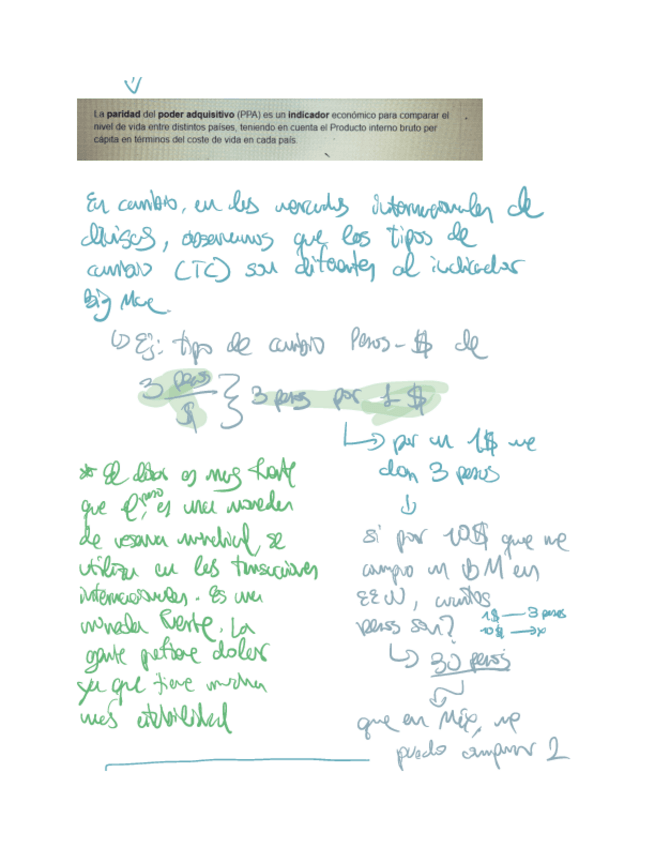 La paridad del poder adquisitivo (PPA) es un indicador económico para comparar el
nivel de vida entre distintos países, teniendo en cuenta el Producto interno bruto per
cápita en términos del coste de vida en cada país.
En cambio, en los mercados internacionales de
divisas, observamos que los tipos de
cambio (TC) son diferentes al indicador
Big Mac.
↳ Ej: tipo de cambio Pesos - $ de
3 pesos / $ } 3 pesos por 1 $
↳ por un 1$ me
dan 3 pesos
↓
si por 10$ que me
compro un BM en
EEUU, cuantos
pesos son?
1$ — 3 pesos
10$ → x
↳ 30 pesos
que en Méjico, me
puedo comprar 2
* El dolar es mas fuerte
que el peso, es una moneda
de reserva mundial, se
utiliza en las transacciones
internacionales. Es una
moneda fuerte. La
gente prefiere dolar
ya que tiene mucha
más estabilidad